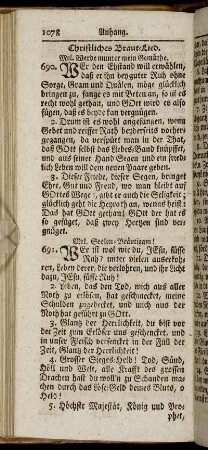 1078 Anhang.
Christliches Braut-Lied.
Mel. Werde munter mein Gemüthe.
690. Wer den Ehstand will erwählen,
daß er ihn bey guter Ruh ohne
Sorge, Gram und Quälen, möge glücklich
bringen zu, fange es mit Beten an, so ist es
recht wohl gethan, und GOtt wird es also
fügen, daß es beyde kan vergnügen.
2. Drum ist es wohl angefangen, wenn
Gebet und reiffer Rath beyderseits vorher
gegangen, da verspürt man in der That,
daß GOtt selbst das Liebes-Band knüpffet,
und aus seiner Hand Segen und ein
glücklich Leben will dem neuen Paare geben.
3. Dieser Friede, dieser Segen, bringet
Ehre, Gut und Freud, wo man bleibt auf
GOttes Wege, ist er auch die Seligkeit;
glücklich geht die Heyrath an, wenn es heißt:
Das hat GOtt gethan! GOtt der hat es
so gefüget, daß zwey Hertzen sind vergnüget.
Mel. Seelen-Bräutigam!
691. Wer ist wol wie du, JEsu, süsse
Ruh? unter vielen auserkohren,
Leben derer, die verlohren, und ihr Licht
dazu, JEsu, süsse Ruh!
2. Leben, das den Tod, mich aus aller
Noth zu erlösen, hat geschmecket, meine
Schulden zugedecket, und mich aus der
Noth hat geführt zu GOtt.
3. Glanz der Herrlichkeit, du bist vor
der Zeit zum Erlöser uns geschencket, und
in unser Fleisch versencket in der Füll der
Zeit, Glanz der Herrlichkeit!
4. Grosser Sieges-Held! Tod, Sünd,
Höll und Welt, alle Krafft des grossen
Drachen hast du woll'n zu Schanden machen
durch das Löse-Geld deines Bluts, o
Held!
5. Höchste Majestät, König und Prophet,